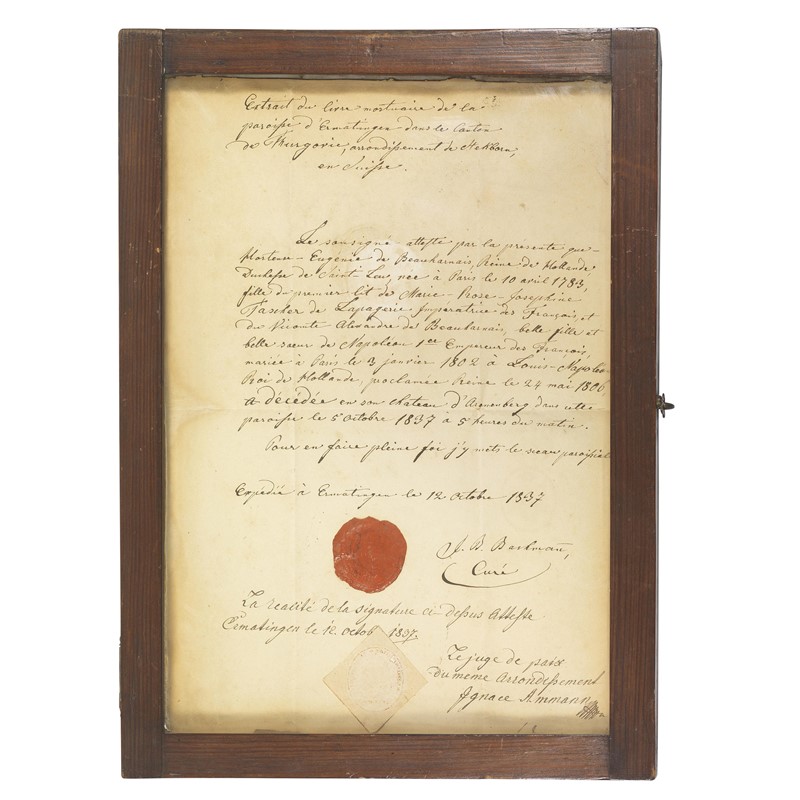 Extrait du livre mortuaire de la
paroisse d'Ermatingen dans le Canton
de Thurgovie, arrondissement de Stekborn,
en Suisse.
Le sousigné atteste par la presente que
Hortense-Eugénie de Beauharnais, Reine de Hollande
Duchesse de Saint-Leu, née à Paris le 10 avril 1783,
fille du premier lit de Marie-Rose-Josephine
Tascher de Lapagerie, Impératrice des François, et
du Vicomte Alexandre de Beauharnais, belle fille et
belle soeur de Napoléon 1er Empereur des François,
mariée à Paris le 3 janvier 1802 à Louis-Napoléon
Roi de Hollande, proclamée Reine le 24 mai 1806
a décédée en son chateau d'Arenenberg dans cette
paroisse le 5 Octobre 1837 à 5 heures du matin.
Pour en faire pleine foi j'y mets le sceau paroissial
Expédié à Ermatingen le 12 Octobre 1837
J. B.
Curé
La realité de la signature ci dessus Atteste
Ermatingen le 12. octob 1837.
Le juge de paix
du meme Arrondissement
Ignace Ammann